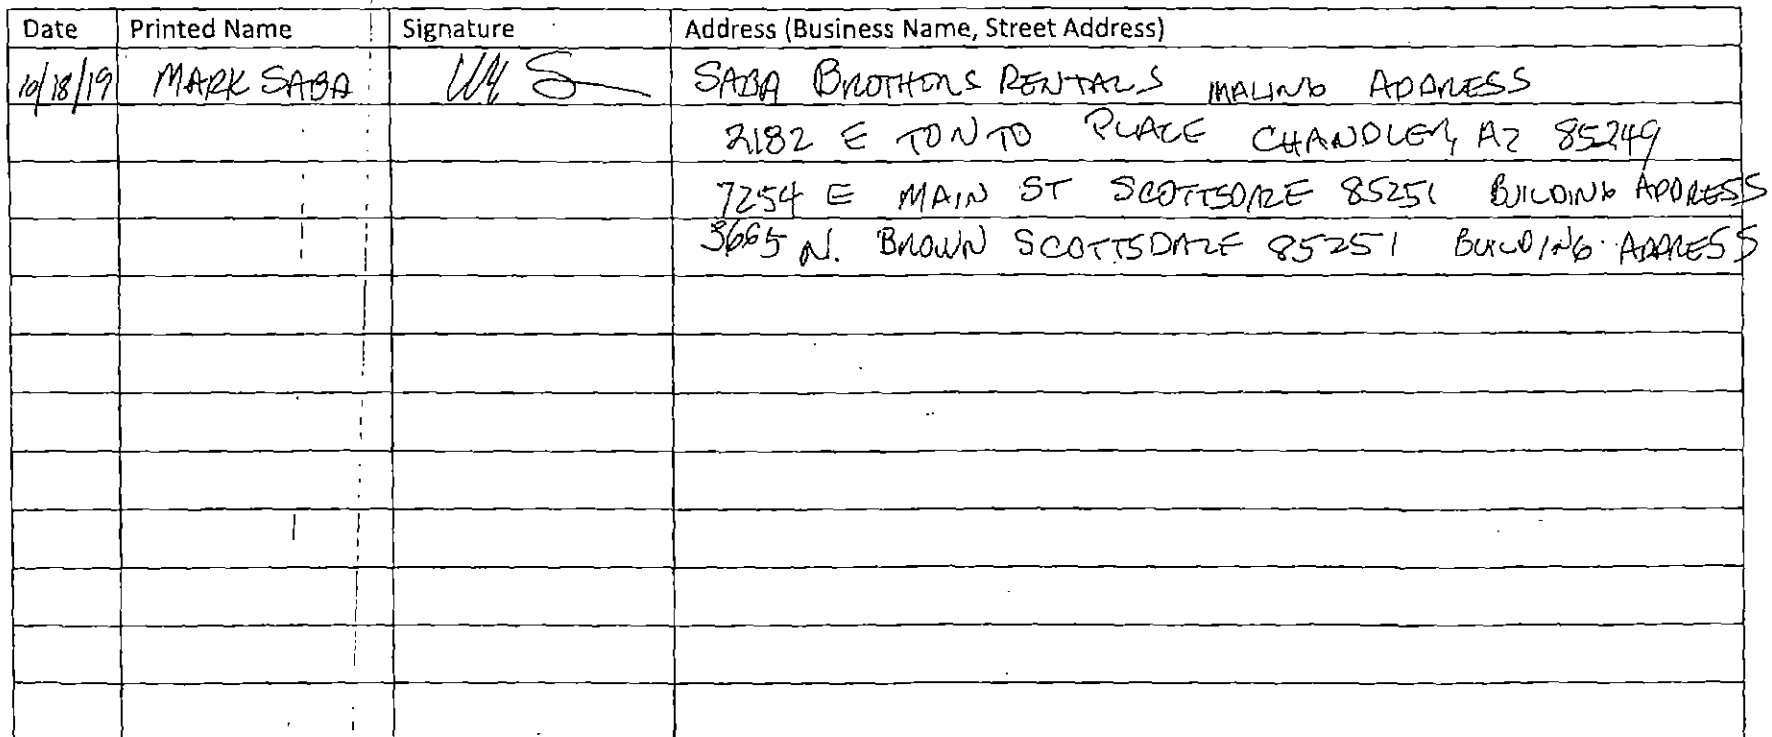 Date Printed Name Signature Address (Business Name, Street Address)
10/18/19 MARK SABA SABA BROTHERS RENTALS MALING ADDRESS
2182 E TONTO PLACE CHANDLER, AZ 85249
7254 E MAIN ST SCOTTSDALE 85251 BUILDING ADDRESS
3665 N. BROWN SCOTTSDALE 85251 BUILDING ADDRESS